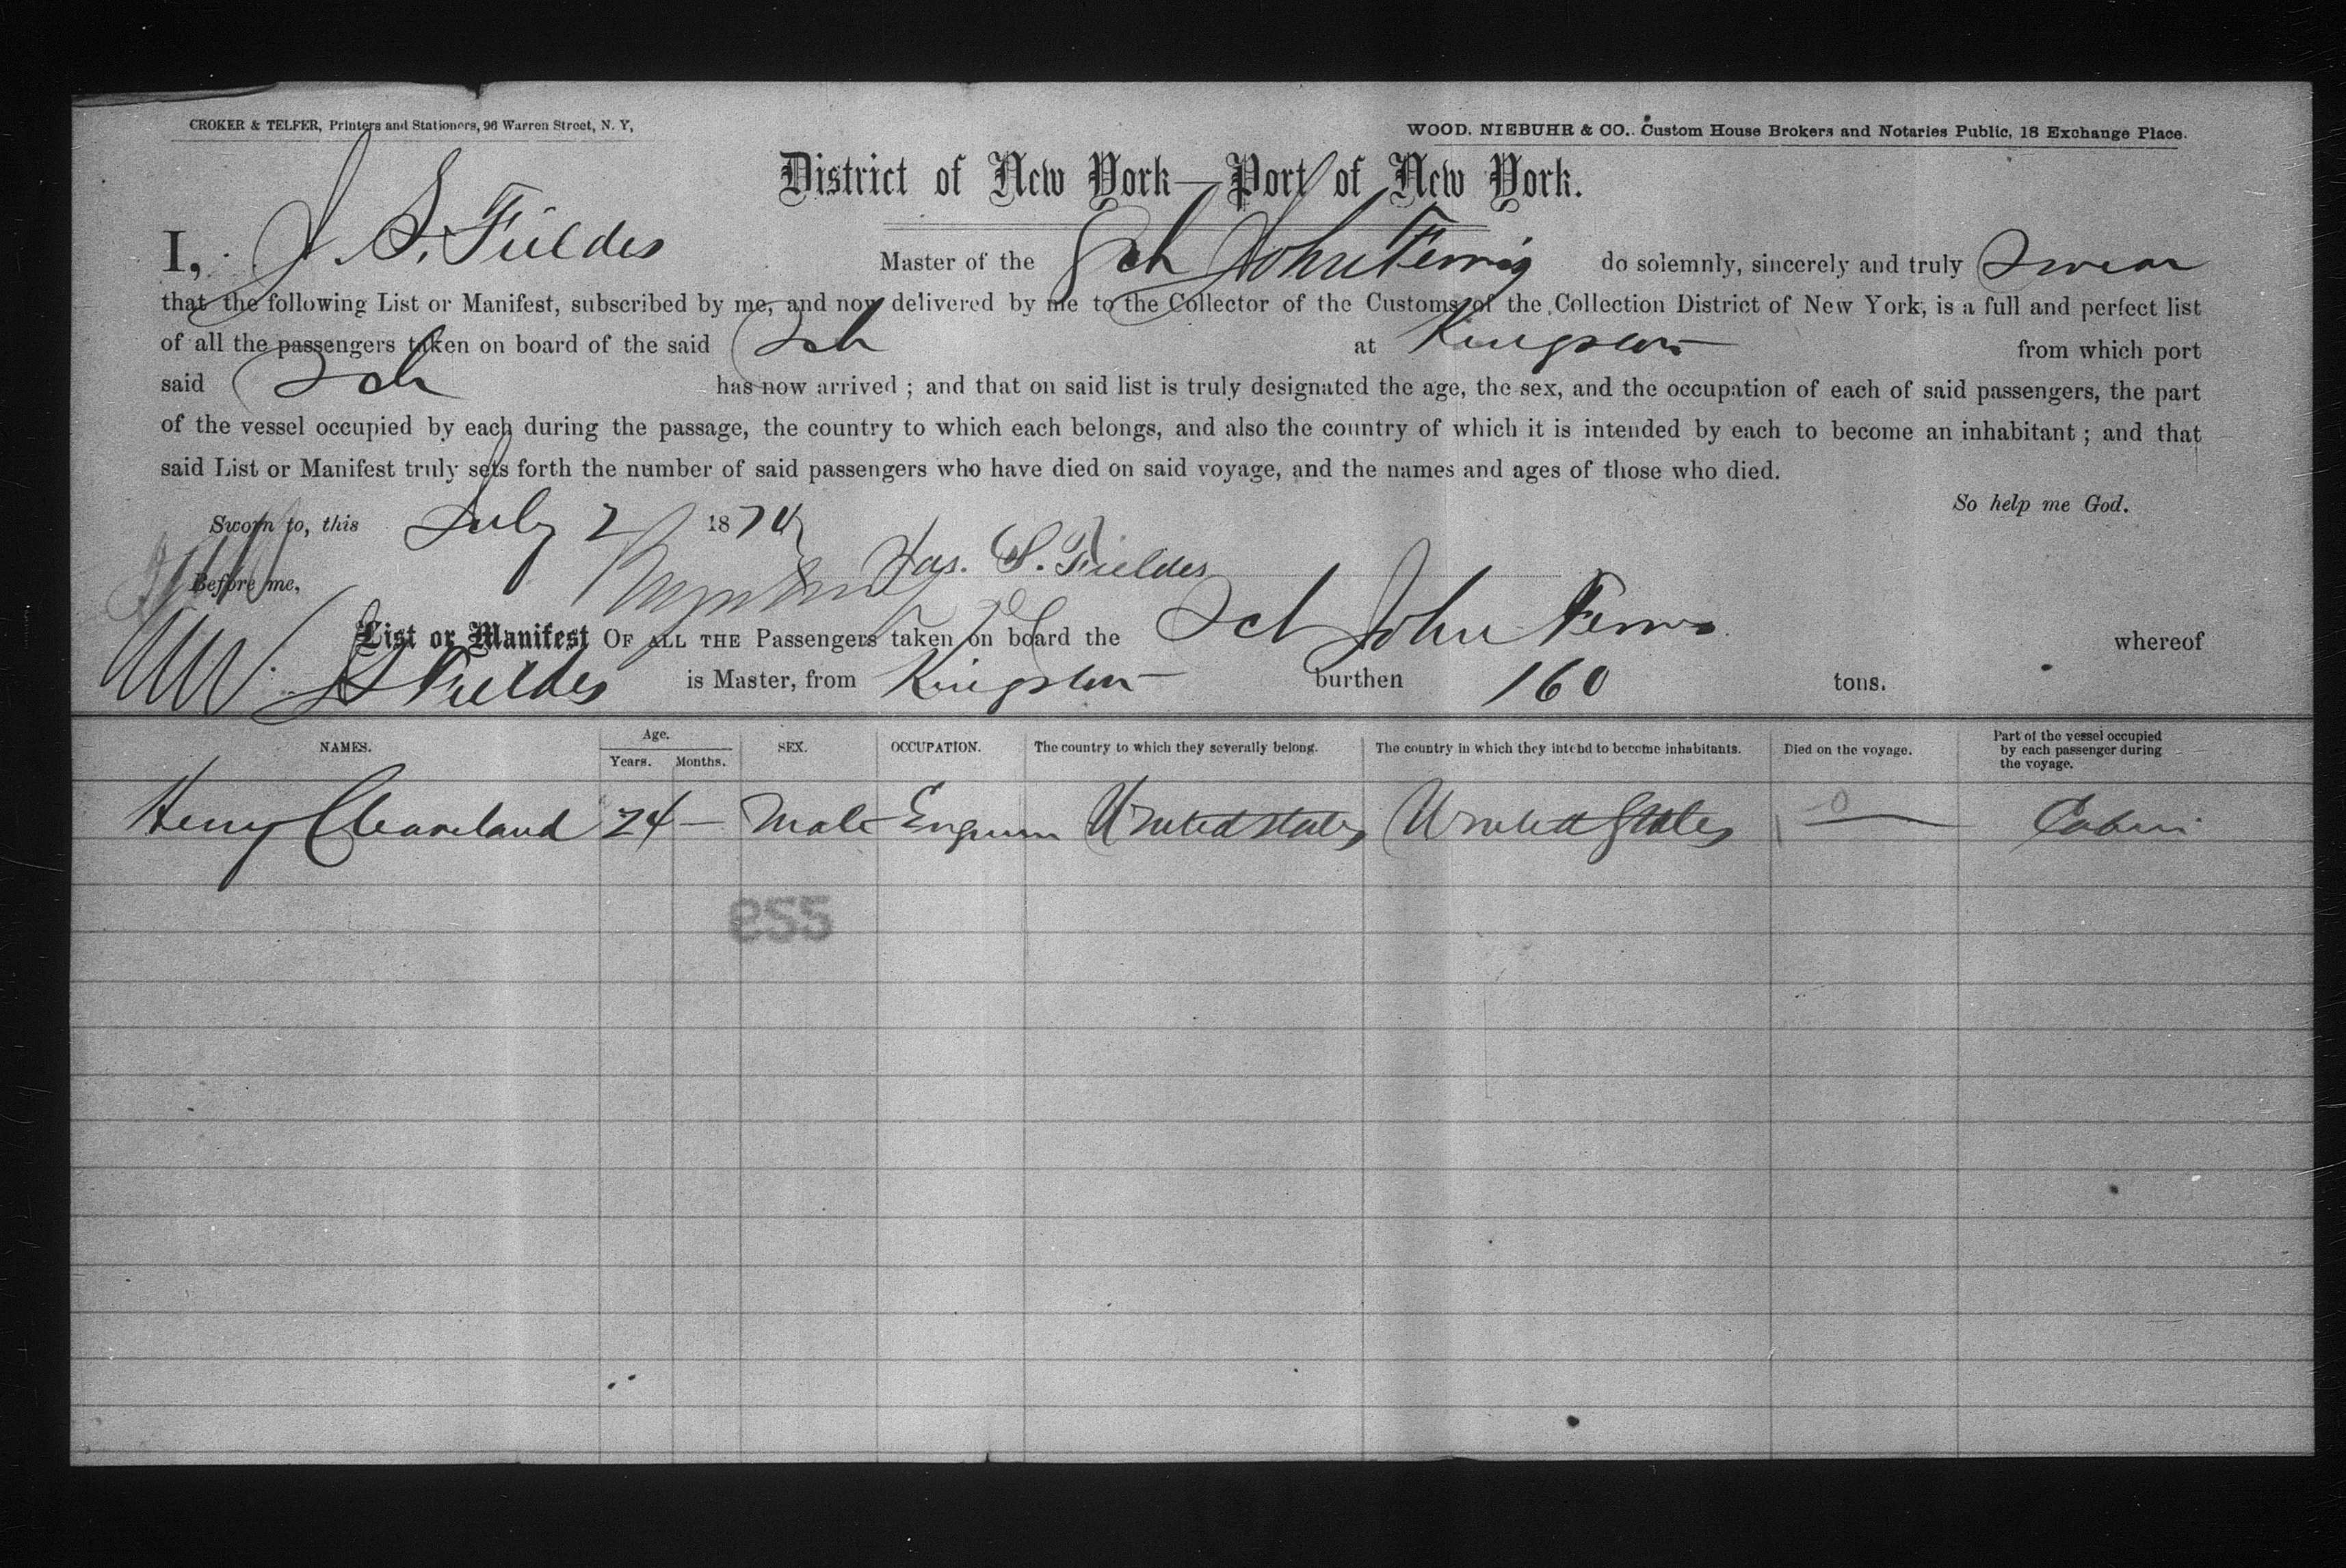 CROKER & TELFER, Printers and Stationers, 96 Warren Street, N. Y,
WOOD, NIEBUHR & CO.. Custom House Brokers and Notaries Public, 18 Exchange Place.
District of New York—Port of New York.
I, J. S. Fieldes Master of the Sch John Ferris do solemnly, sincerely and truly Swear
that the following List or Manifest, subscribed by me, and now delivered by me to the Collector of the Customs of the Collection District of New York, is a full and perfect list
of all the passengers taken on board of the said Sch at Kingston from which port
said Sch has now arrived ; and that on said list is truly designated the age, the sex, and the occupation of each of said passengers, the part
of the vessel occupied by each during the passage, the country to which each belongs, and also the country of which it is intended by each to become an inhabitant ; and that
said List or Manifest truly sets forth the number of said passengers who have died on said voyage, and the names and ages of those who died.
So help me God.
Sworn to, this July 2 1870
Jas. S. Fieldes
Before me,
List or Manifest OF ALL THE Passengers taken on board the Sch John Ferris whereof
S Fieldes is Master, from Kingston burthen 160 tons.
NAMES. Age. Years. Months. SEX. OCCUPATION. The country to which they severally belong. The country in which they intend to become inhabitants. Died on the voyage. Part of the vessel occupied by each passenger during the voyage.
Henry Cleaveland 24 — Male Engineer United States United States 0 Cabin